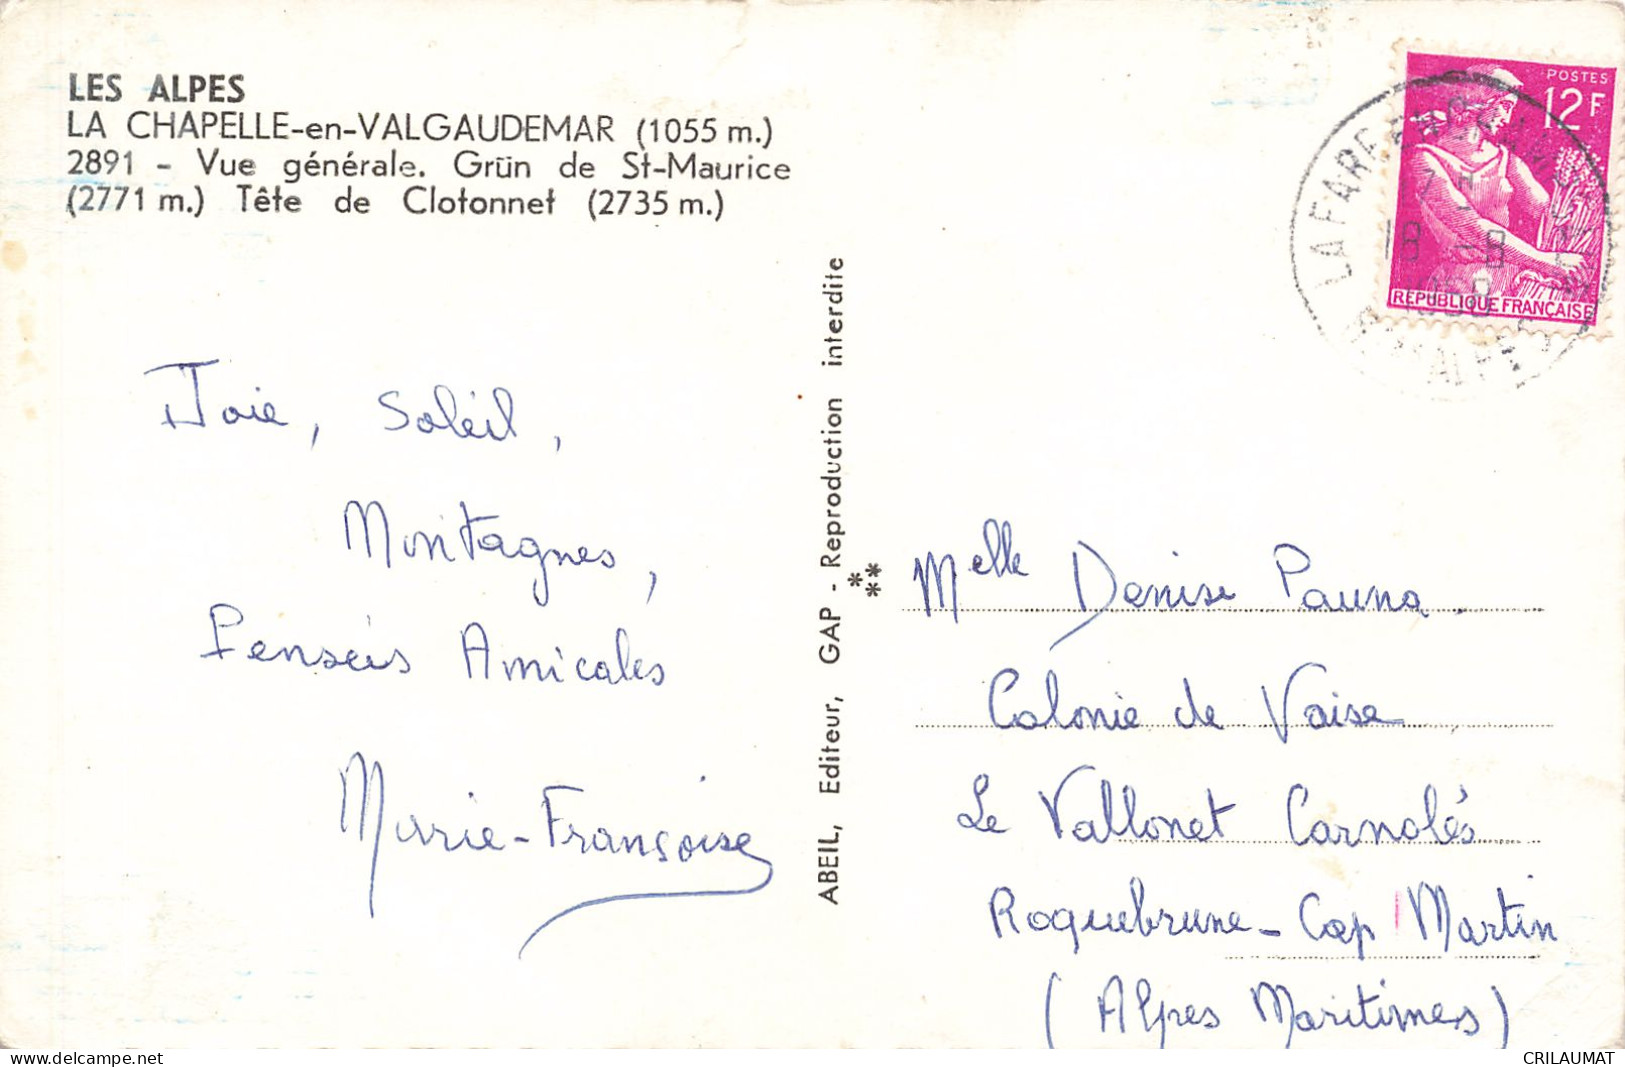 LES ALPES
LA CHAPELLE-en-VALGAUDEMAR (1055 m.)
2891 - Vue générale. Grün de St-Maurice
(2771 m.) Tête de Clotonnet (2735 m.)
Joie, Soleil,
Montagnes,
Pensées Amicales
Marie-Françoise
ABEIL, Editeur, GAP - Reproduction interdite
POSTES
12F
REPUBLIQUE FRANÇAISE
LA FARE EN
18 -8
Melle Denise Pauna.
Colonie de Vaise
Le Vallonet Carnolés
Roquebrune-Cap Martin
(Alpes Maritimes)
CRILAUMAT